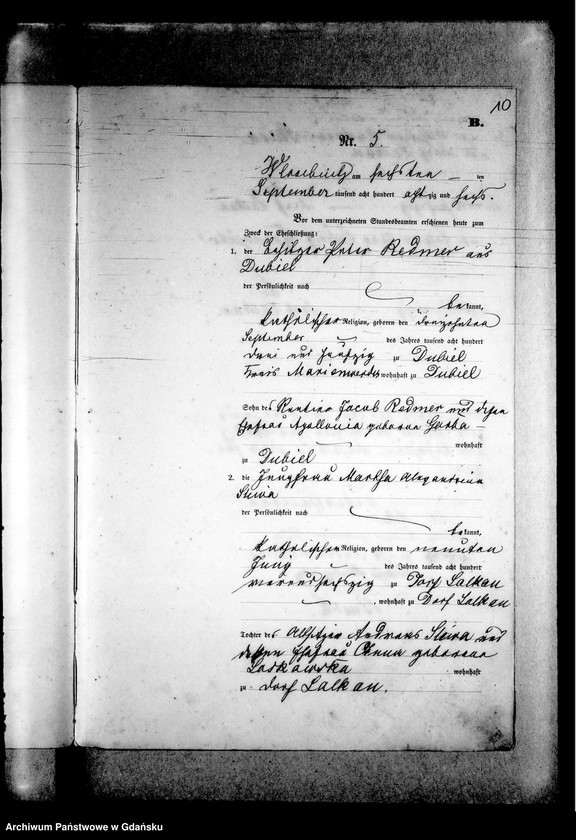 10
B.
Nr. 5.
am sechsten ten
September tausend acht hundert achtzig und sechs.
Vor dem unterzeichneten Standesbeamten erschienen heute zum
Zweck der Eheschließung:
1. der Besitzer Peter Redmer aus
Dubiel
der Persönlichkeit nach
bekannt,
katholischer Religion, geboren den dreizehnten
September des Jahres tausend acht hundert
drei und fünfzig zu Dubiel
Kreis Marienwerder wohnhaft zu Dubiel
Sohn des Rentier Jacob Redmer und dessen
Ehefrau Apollonia geborene
wohnhaft
zu Dubiel
2. die Jungfrau Martha Alexandrina
der Persönlichkeit nach
bekannt,
katholischer Religion, geboren den neunten
des Jahres tausend acht hundert
vierundsechszig zu Dorf Lalkau
, wohnhaft zu Dorf Lalkau
Tochter des Altsitzer Andreas und
dessen Ehefrau geborene
wohnhaft
zu Dorf Lalkau.
Archiwum Państwowe w Gdańsku